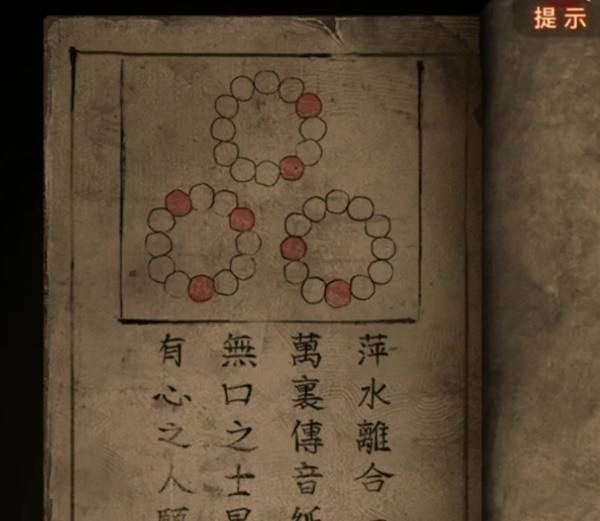 提示
萍水離合
萬裏傳音紙
無口之士
有心之人願